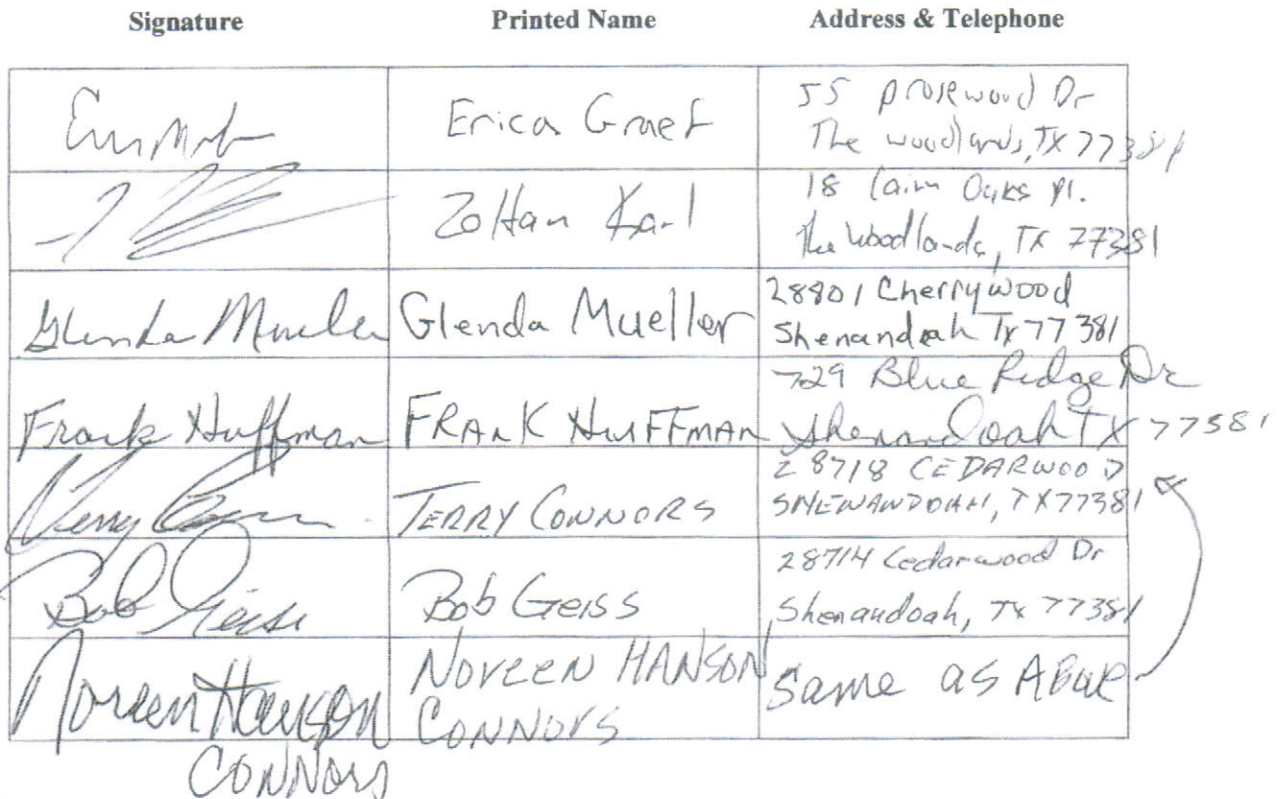 Signature Printed Name Address & Telephone
Erica Graef 55 prosewood Dr
The woodlands, TX 77381
Zoltan Karl 18 Cairn Oaks Pl.
The Woodlands, TX 77381
Glenda Mueller Glenda Mueller 28801 Cherrywood
Shenandoah Tx 77381
Frank Huffman FRANK HUFFMAN 729 Blue Ridge Dr
Shenandoah TX 77381
Terry Connors TERRY CONNORS 28718 CEDARWOOD
SHENANDOAH, TX 77381
Bob Geiss Bob Geiss 28714 Cedarwood Dr
Shenandoah, Tx 77381
Noreen Hanson NOREEN HANSON Same as ABove
CONNORS CONNORS